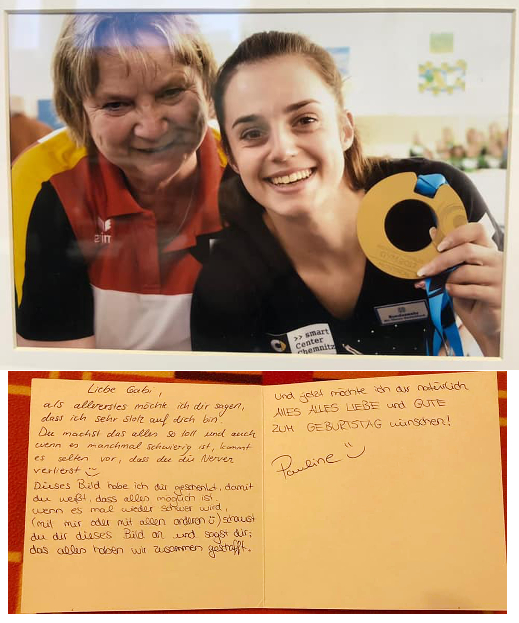 >> smart
Center
Chemnitz
Liebe Gabi,
als allererstes möchte ich dir sagen,
dass ich sehr stolz auf dich bin!
Du machst das alles so toll und auch
wenn es manchmal schwierig ist, kommt
es selten vor, dass du die Nerven
verlierst
Dieses Bild habe ich dir geschenkt, damit
du weißt, dass alles möglich ist.
wenn es mal wieder schwer wird,
(mit mir oder mit allen anderen) schaust
du dir dieses Bild an und sagst dir:
das alles haben wir zusammen geschafft.
und jetzt möchte ich dir natürlich
ALLES ALLES LIEBE und GUTE
ZUM GEBURTSTAG wünschen!
Pauline